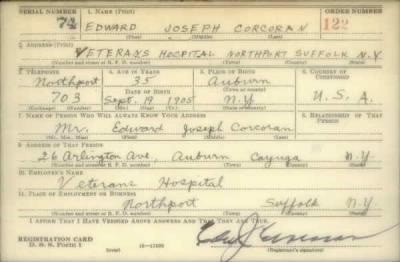 SERIAL NUMBER 1. NAME (Print) ORDER NUMBER
EDWARD JOSEPH CORCORAN 122
(First) (Middle) (Last)
2. ADDRESS (Print)
VETERANS HOSPITAL NORTHPORT SUFFOLK N.Y
(Number and street or R. F. D. number) (Town) (County) (State)
3. TELEPHONE 4. AGE IN YEARS 5. PLACE OF BIRTH 6. COUNTRY OF CITIZENSHIP
Northport 35 Auburn
DATE OF BIRTH (Town or county)
703 Sept. 19 1905 N.Y U.S.A.
(Exchange) (Number) (Mo.) (Day) (Yr.) (State or country)
7. NAME OF PERSON WHO WILL ALWAYS KNOW YOUR ADDRESS 8. RELATIONSHIP OF THAT PERSON
Mr. Edward Joseph Corcoran
(Mr., Mrs., Miss) (First) (Middle) (Last)
9. ADDRESS OF THAT PERSON
26 Arlington Ave, Auburn Cayuga N.Y
(Number and street or R. F. D. number) (Town) (County) (State)
10. EMPLOYER'S NAME
Veterans Hospital
11. PLACE OF EMPLOYMENT OR BUSINESS
Northport Suffolk N.Y
(Number and street or R. F. D. number) (Town) (County) (State)
I AFFIRM THAT I HAVE VERIFIED ABOVE ANSWERS AND THAT THEY ARE TRUE.
REGISTRATION CARD
D. S. S. Form 1 (over)